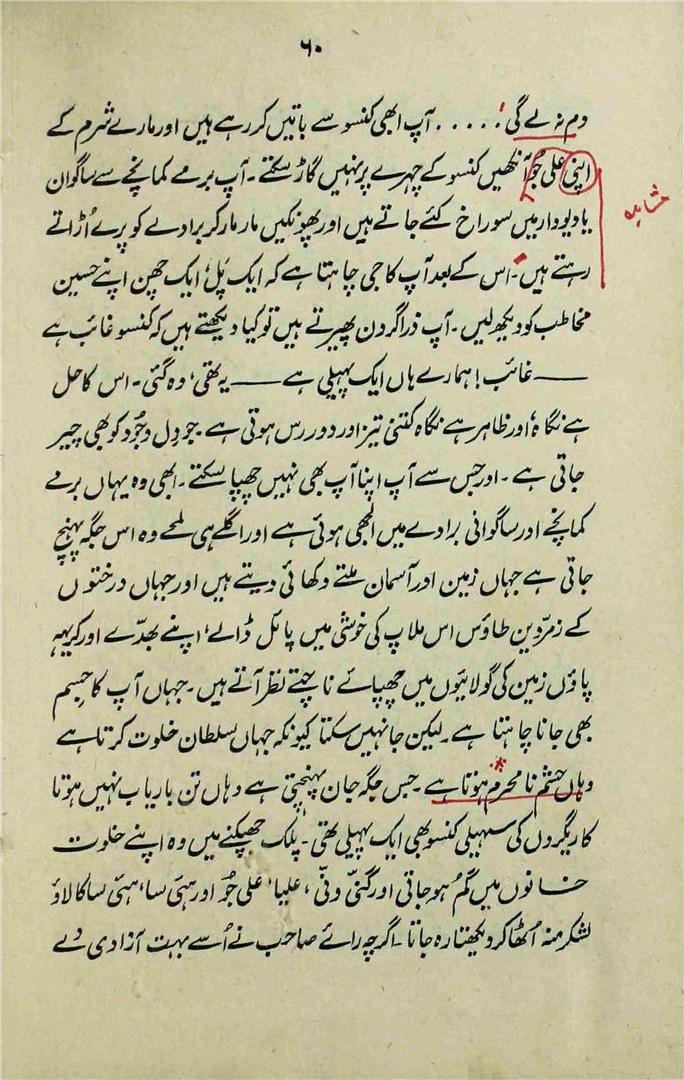 ۶۰
دم نہ لے گی! ..... آپ ابھی کنسو سے باتیں کر رہے ہیں اور مارے شرم کے
اپنی علی جُو آنکھیں کنسو کے چہرے پر نہیں گاڑ سکتے۔ آپ برمے کمانچے سے ساگوان
یا دیودار میں سوراخ کئے جاتے ہیں اور پھونکیں مار مار کر برادے کو پرے اُڑاتے
رہتے ہیں۔ اس کے بعد آپ کا جی چاہتا ہے کہ ایک پَل، ایک چھن اپنے حسین
مخاطب کو دیکھ لیں۔ آپ ذرا گردن پھیرتے ہیں تو کیا دیکھتے ہیں کہ کنسو غائب ہے
——غائب! ہمارے ہاں ایک پہیلی ہے——یہ تھی، وہ گئی۔ اس کا حل
ہے نگاہ، اور ظاہر ہے نگاہ کتنی تیز اور دور رس ہوتی ہے۔ جو دل وجُود کو بھی چیر
جاتی ہے۔ اور جس سے آپ اپنا آپ بھی نہیں چھپا سکتے۔ ابھی وہ یہاں برمے
کمانچے اور ساگوانی برادے میں الجھی ہوئی ہے اور اگلے ہی لمحے وہ اس جگہ پہنچ
جاتی ہے جہاں زمین اور آسمان ملتے دکھائی دیتے ہیں اور جہاں درختوں
کے زمرّدین طاؤس اس ملاپ کی خوشی میں پائل ڈالے، اپنے بھدّے اور کریہہ
پاؤں زمین کی گولائیوں میں چھپائے ناچتے نظر آتے ہیں۔ جہاں آپ کا جسم
بھی جانا چاہتا ہے۔ لیکن جا نہیں سکتا کیونکہ جہاں سلطان خلوت کرتا ہے
وہاں چشم نامحرم ہوتا ہے۔ جس جگہ جان پہنچتی ہے وہاں تن باریاب نہیں ہوتا
کاریگروں کی سہیلی کنسو بھی ایک پہیلی تھی۔ پلک جھپکنے میں وہ اپنے خلوت
خانوں میں گم ہو جاتی اور گنی ونی، علیا، علی جُو اور ہتی سا، ہتی سا کا لاؤ
لشکر منہ اُٹھا کر دیکھتا رہ جاتا۔ اگرچہ رائے صاحب نے اُسے بہت آزادی دے